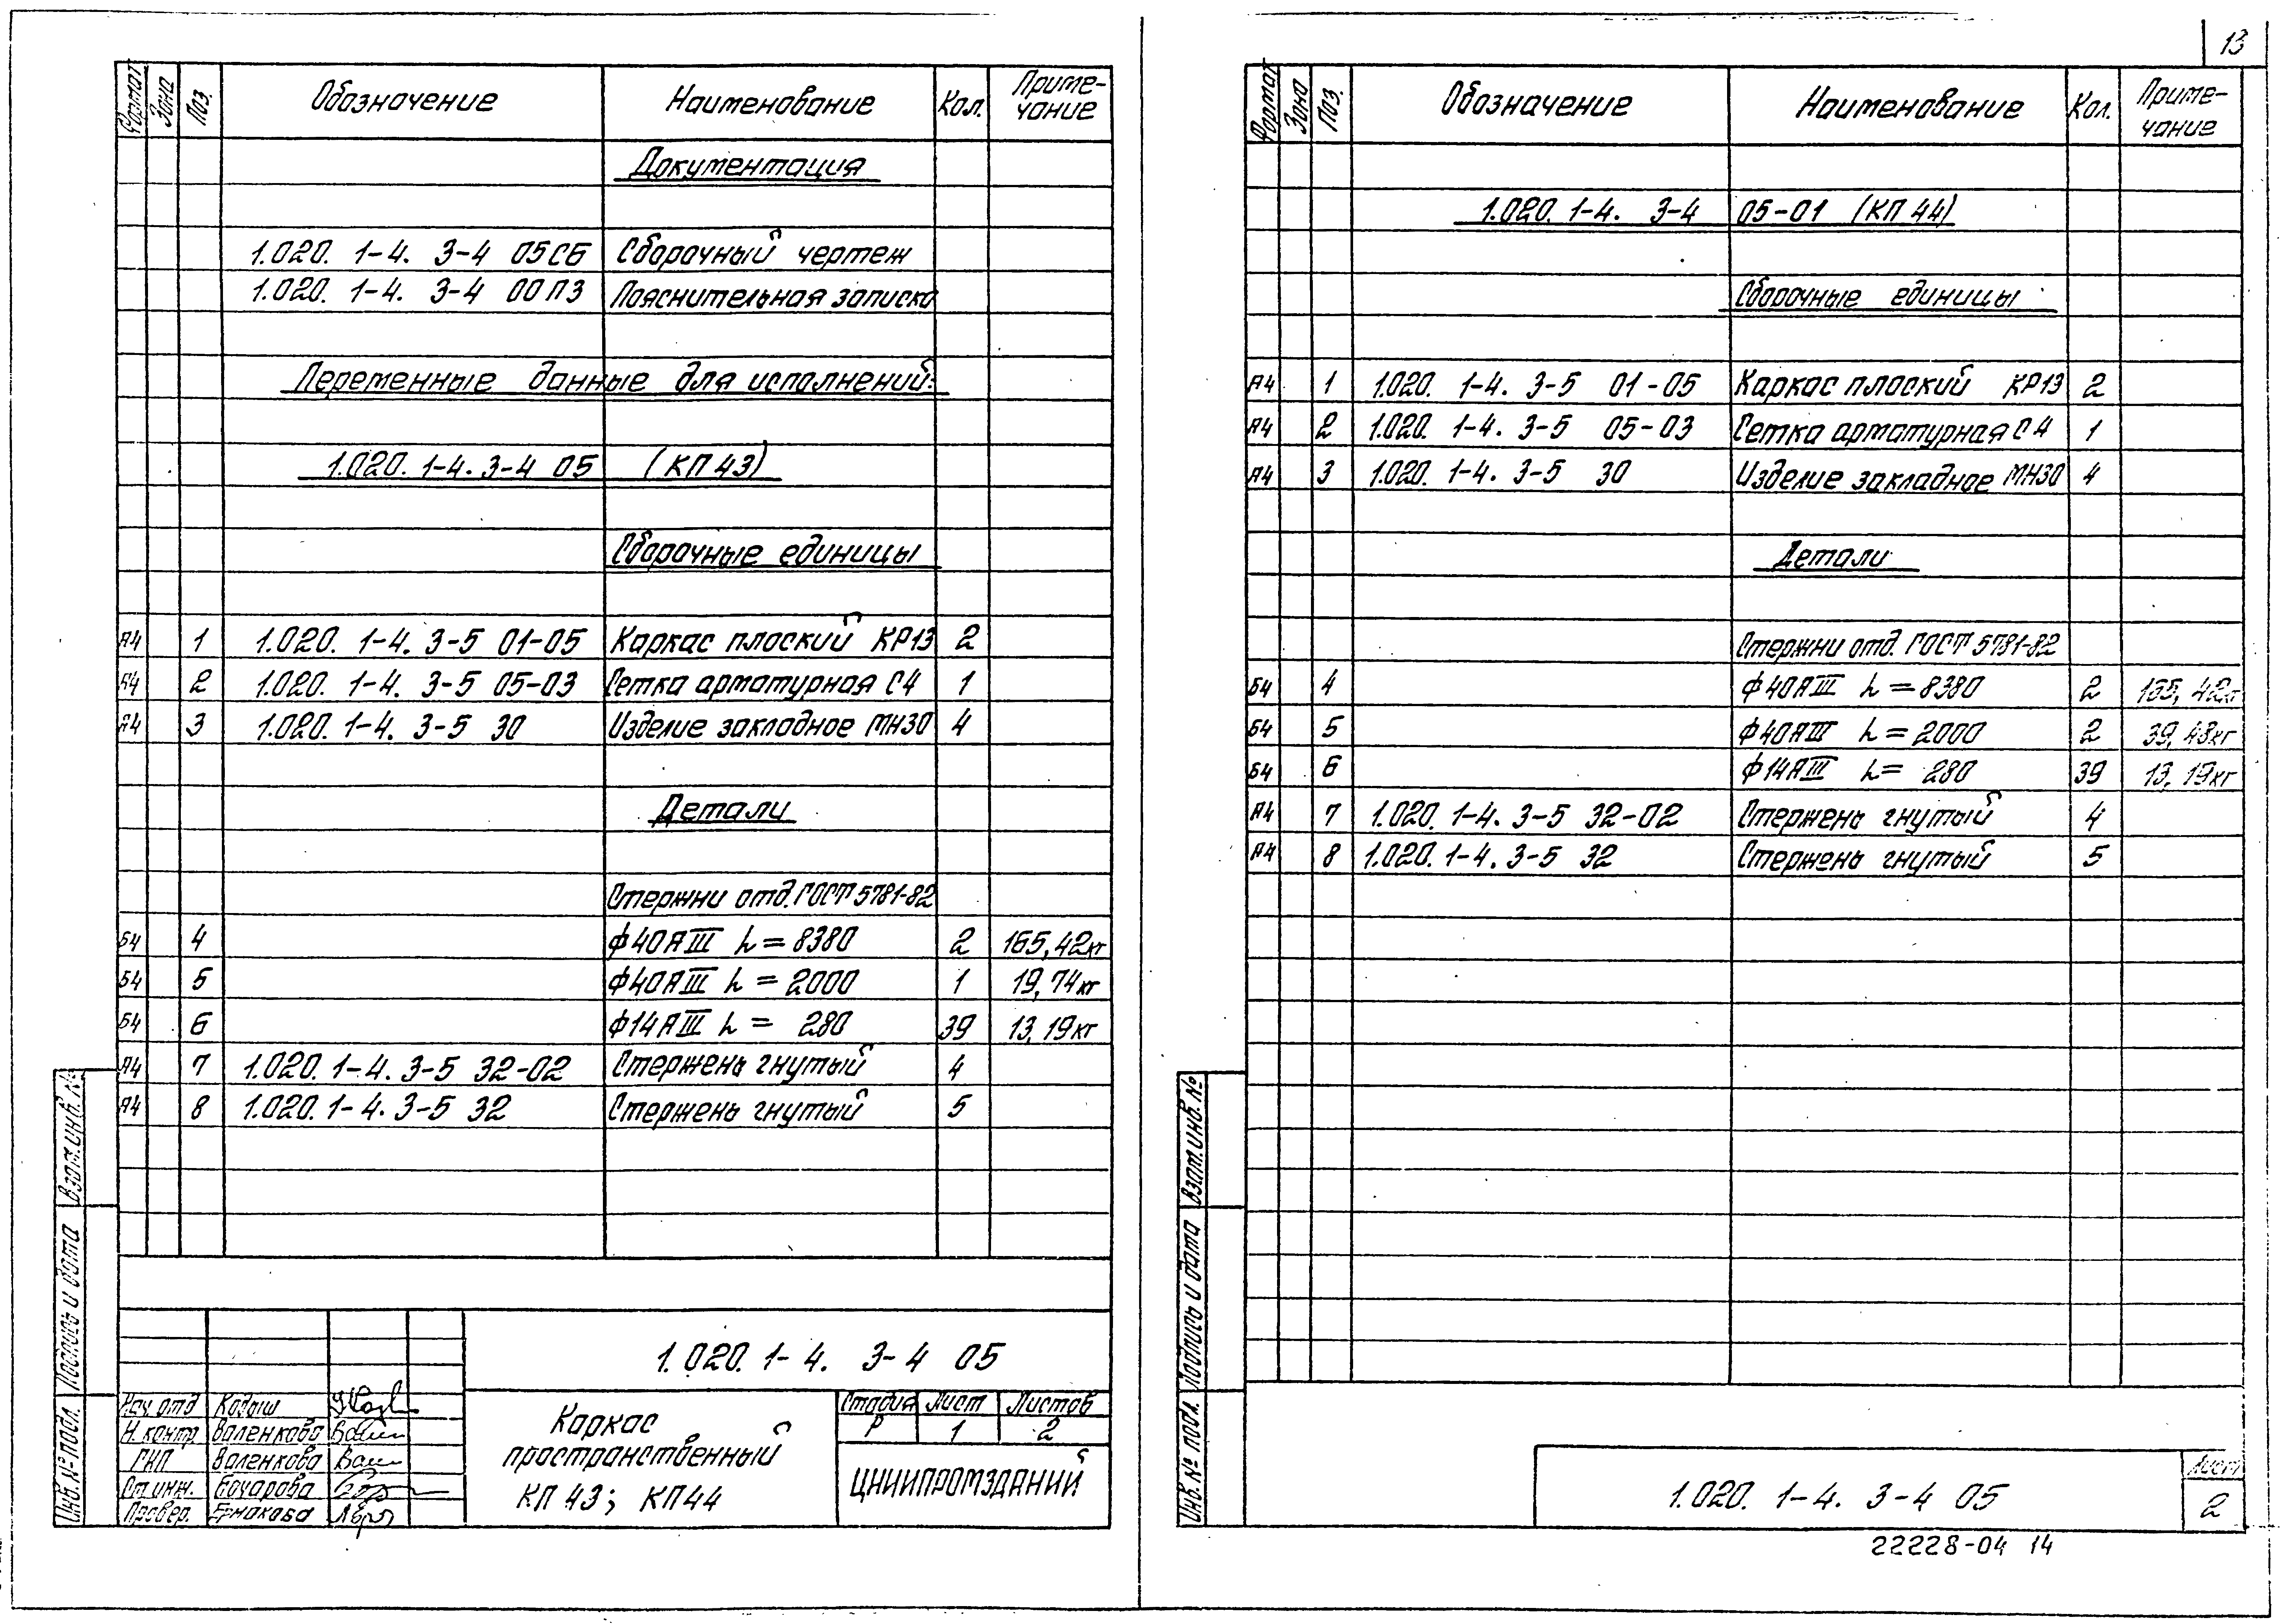 Формат Зона Поз. Обозначение Наименование Кол. Приме-
чание
Документация
1.020. 1-4. 3-4 05СБ Сборочный чертеж
1.020. 1-4. 3-4 00ПЗ Пояснительная записка
Переменные данные для исполнений:
1.020. 1-4. 3-4 05 (КП 43)
Сборочные единицы
А4 1 1.020. 1-4. 3-5 01-05 Каркас плоский КР13 2
А4 2 1.020. 1-4. 3-5 05-03 Сетка арматурная С4 1
А4 3 1.020. 1-4. 3-5 30 Изделие закладное МН30 4
Детали
Стержни отд. ГОСТ 5781-82
Б4 4 ф40АIII L=8380 2 165,42кг
Б4 5 ф40АIII L=2000 1 19,74кг
Б4 6 ф14АIII L= 280 39 13,19кг
А4 7 1.020. 1-4. 3-5 32-02 Стержень гнутый 4
А4 8 1.020. 1-4. 3-5 32 Стержень гнутый 5
Взам.инв.№
Подпись и дата
Инв.№ подл.
1.020. 1-4. 3-4 05
Нач.отд Кодыш
Н.контр Валенкова
ГИП Валенкова
Ст.инж. Бочарова
Провер. Ермакова
Каркас
пространственный
КП 43; КП44
Стадия Лист Листов
Р 1 2
ЦНИИПРОМЗДАНИЙ
13
Формат Зона Поз. Обозначение Наименование Кол. Приме-
чание
1.020. 1-4. 3-4 05-01 (КП 44)
Сборочные единицы
А4 1 1.020. 1-4. 3-5 01-05 Каркас плоский КР13 2
А4 2 1.020. 1-4. 3-5 05-03 Сетка арматурная С4 1
А4 3 1.020. 1-4. 3-5 30 Изделие закладное МН30 4
Детали
Стержни отд. ГОСТ 5781-82
Б4 4 ф40АIII L=8380 2 165,42кг
Б4 5 ф40АIII L=2000 2 39,48кг
Б4 6 ф14АIII L= 280 39 13,19кг
А4 7 1.020. 1-4. 3-5 32-02 Стержень гнутый 4
А4 8 1.020. 1-4. 3-5 32 Стержень гнутый 5
Взам.инв.№
Подпись и дата
Инв.№ подл.
1.020. 1-4. 3-4 05
Лист
2
22228-04 14